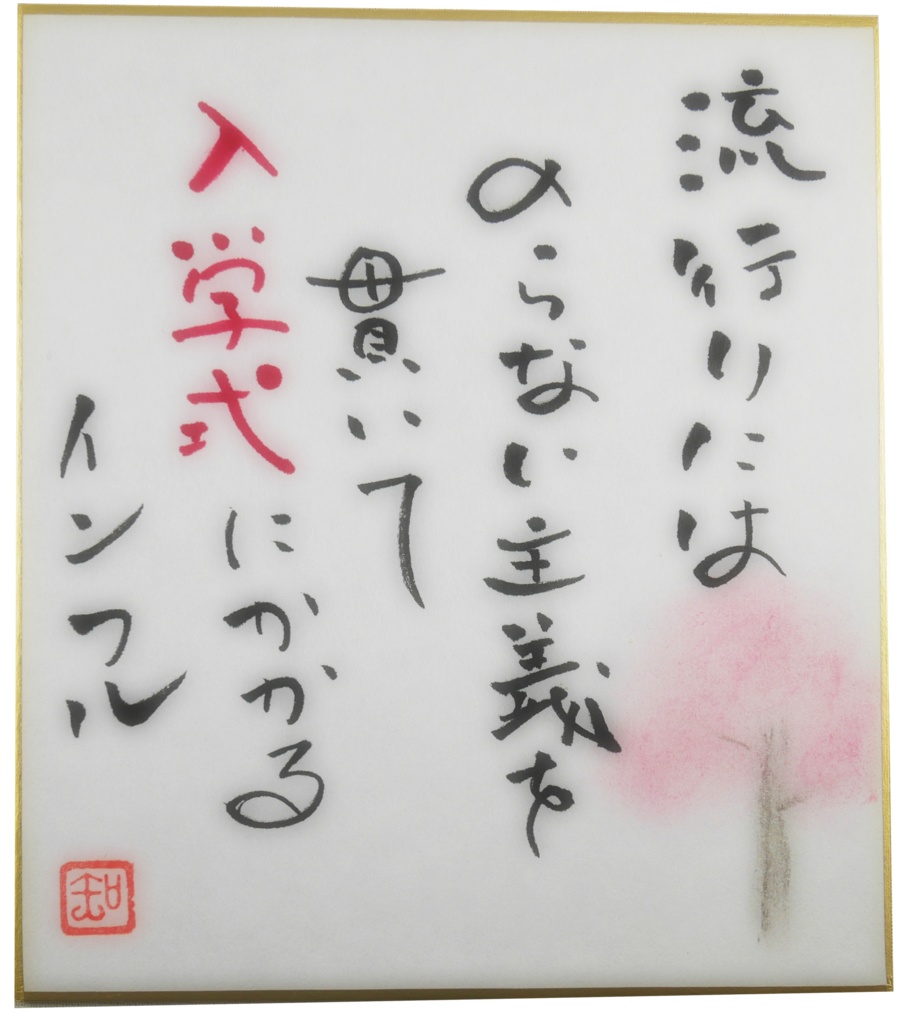 流行りには
のらない主義を
貫いて
入学式にかかる
インフル
知